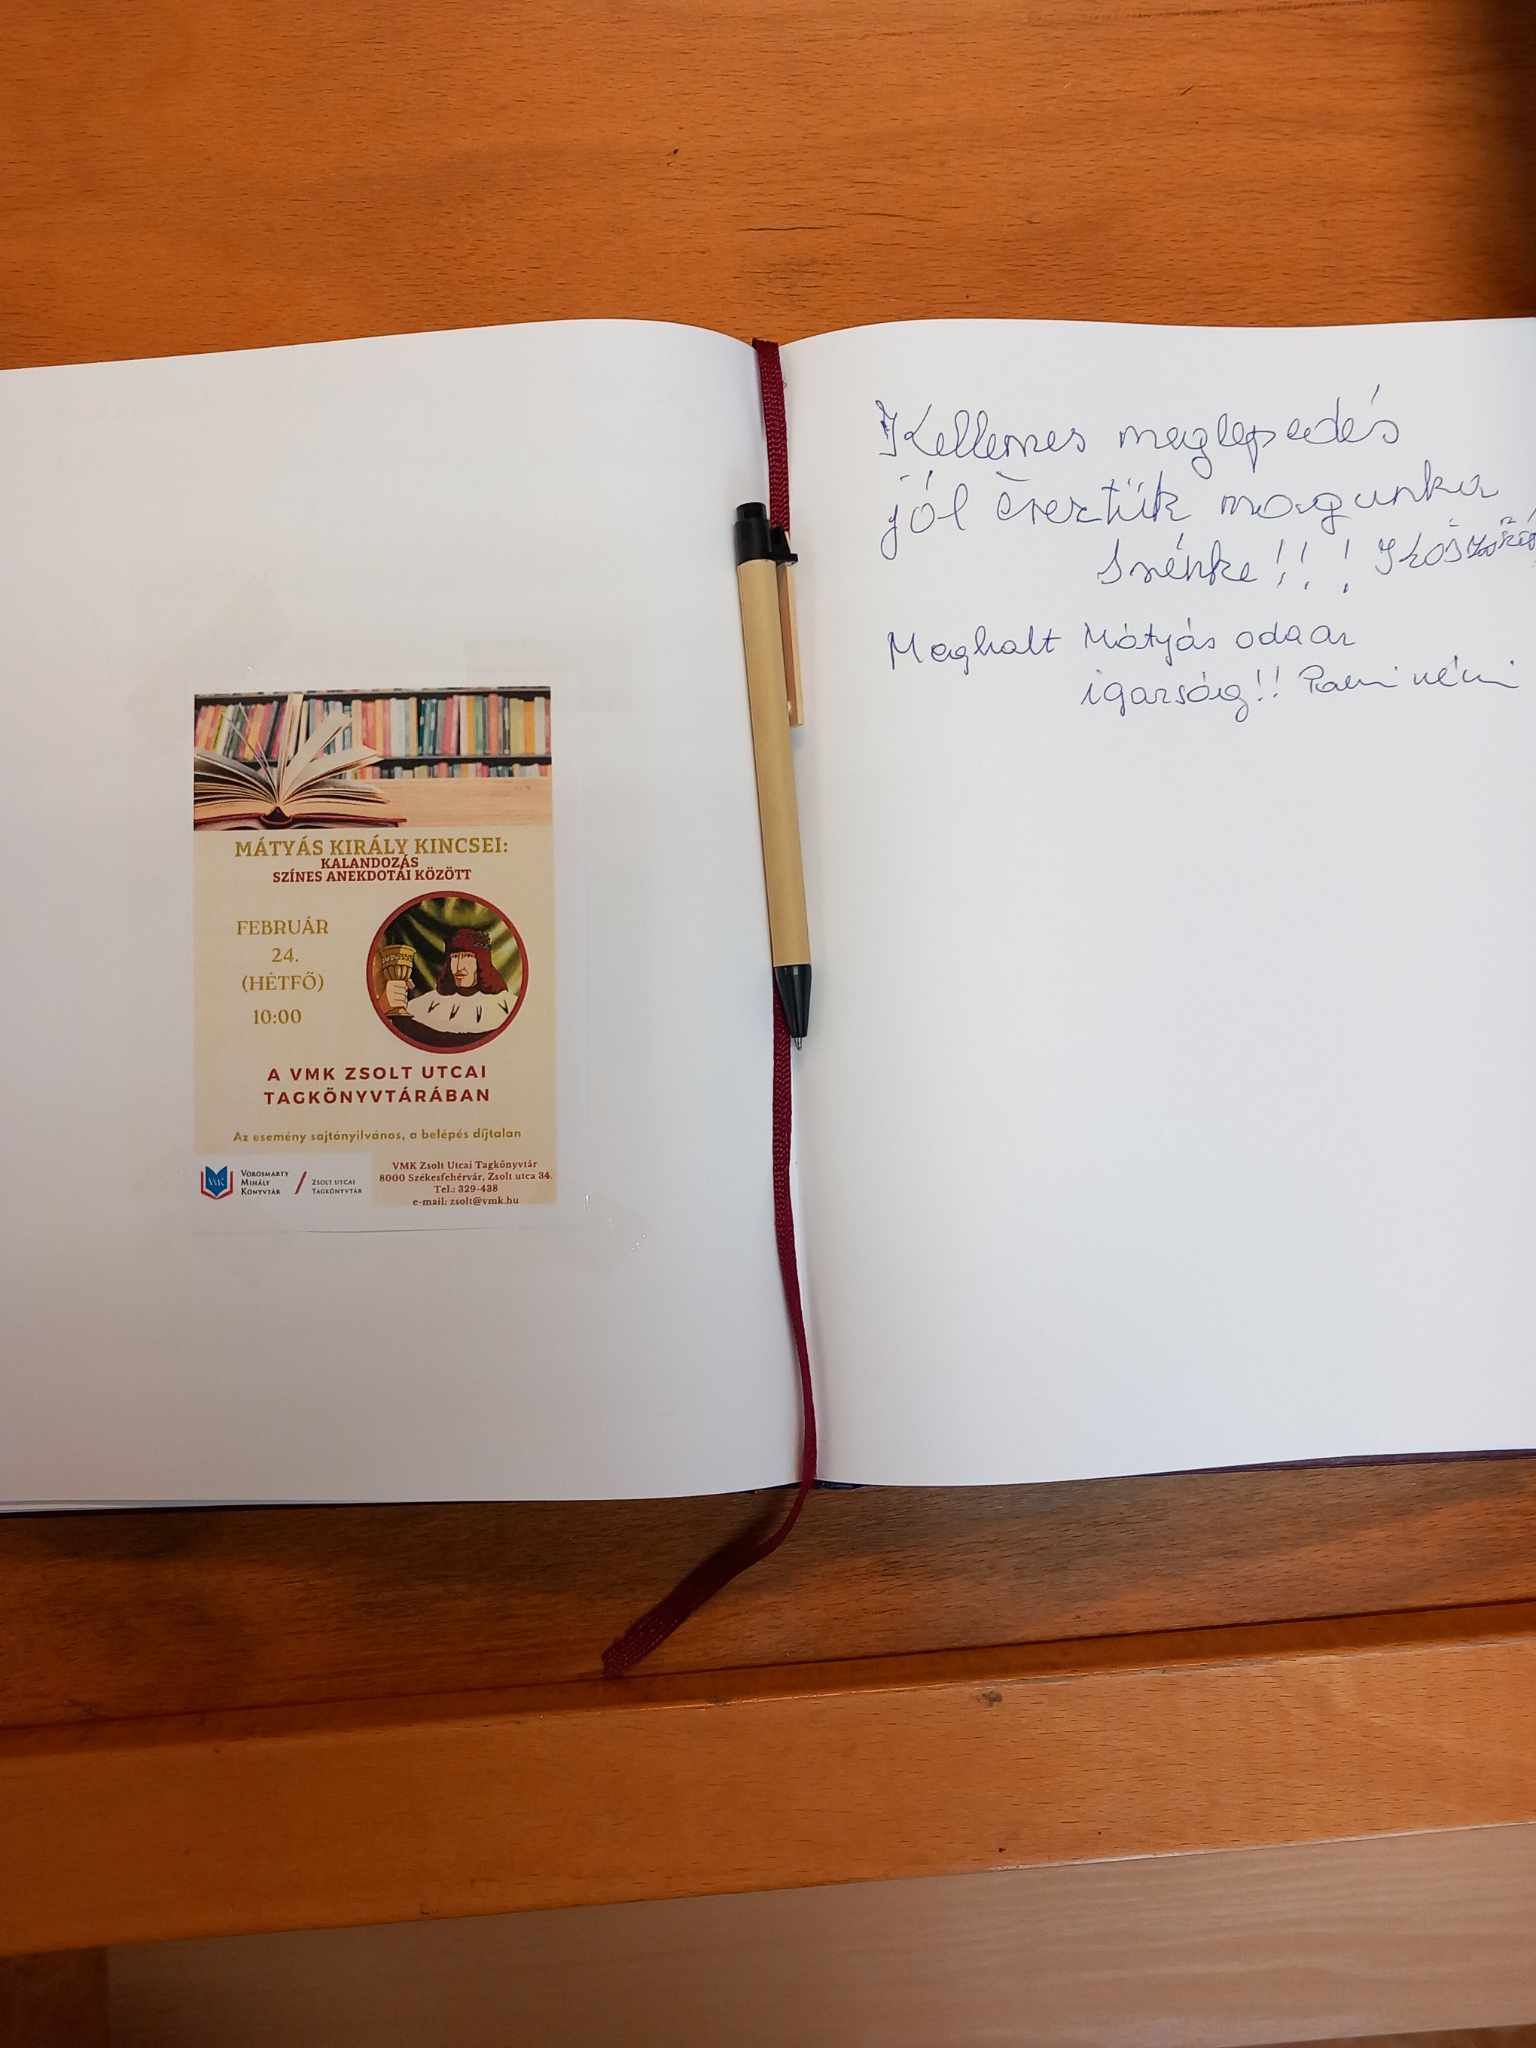 MÁTYÁS KIRÁLY KINCSEI:
KALANDOZÁS
SZÍNES ANEKDOTÁI KÖZÖTT
FEBRUÁR
24.
(HÉTFŐ)
10:00
A VMK ZSOLT UTCAI
TAGKÖNYVTÁRÁBAN
Az esemény sajtónyilvános, a belépés díjtalan
VMK
VÖRÖSMARTY
MIHÁLY
KÖNYVTÁR
ZSOLT UTCAI
TAGKÖNYVTÁR
VMK Zsolt Utcai Tagkönyvtár
8000 Székesfehérvár, Zsolt utca 34.
Tel.: 329-438
e-mail: zsolt@vmk.hu
Kellemes meglepedés
jól éreztük magunka
!! !
Meghalt Mátyás oda az
igazság!! néni